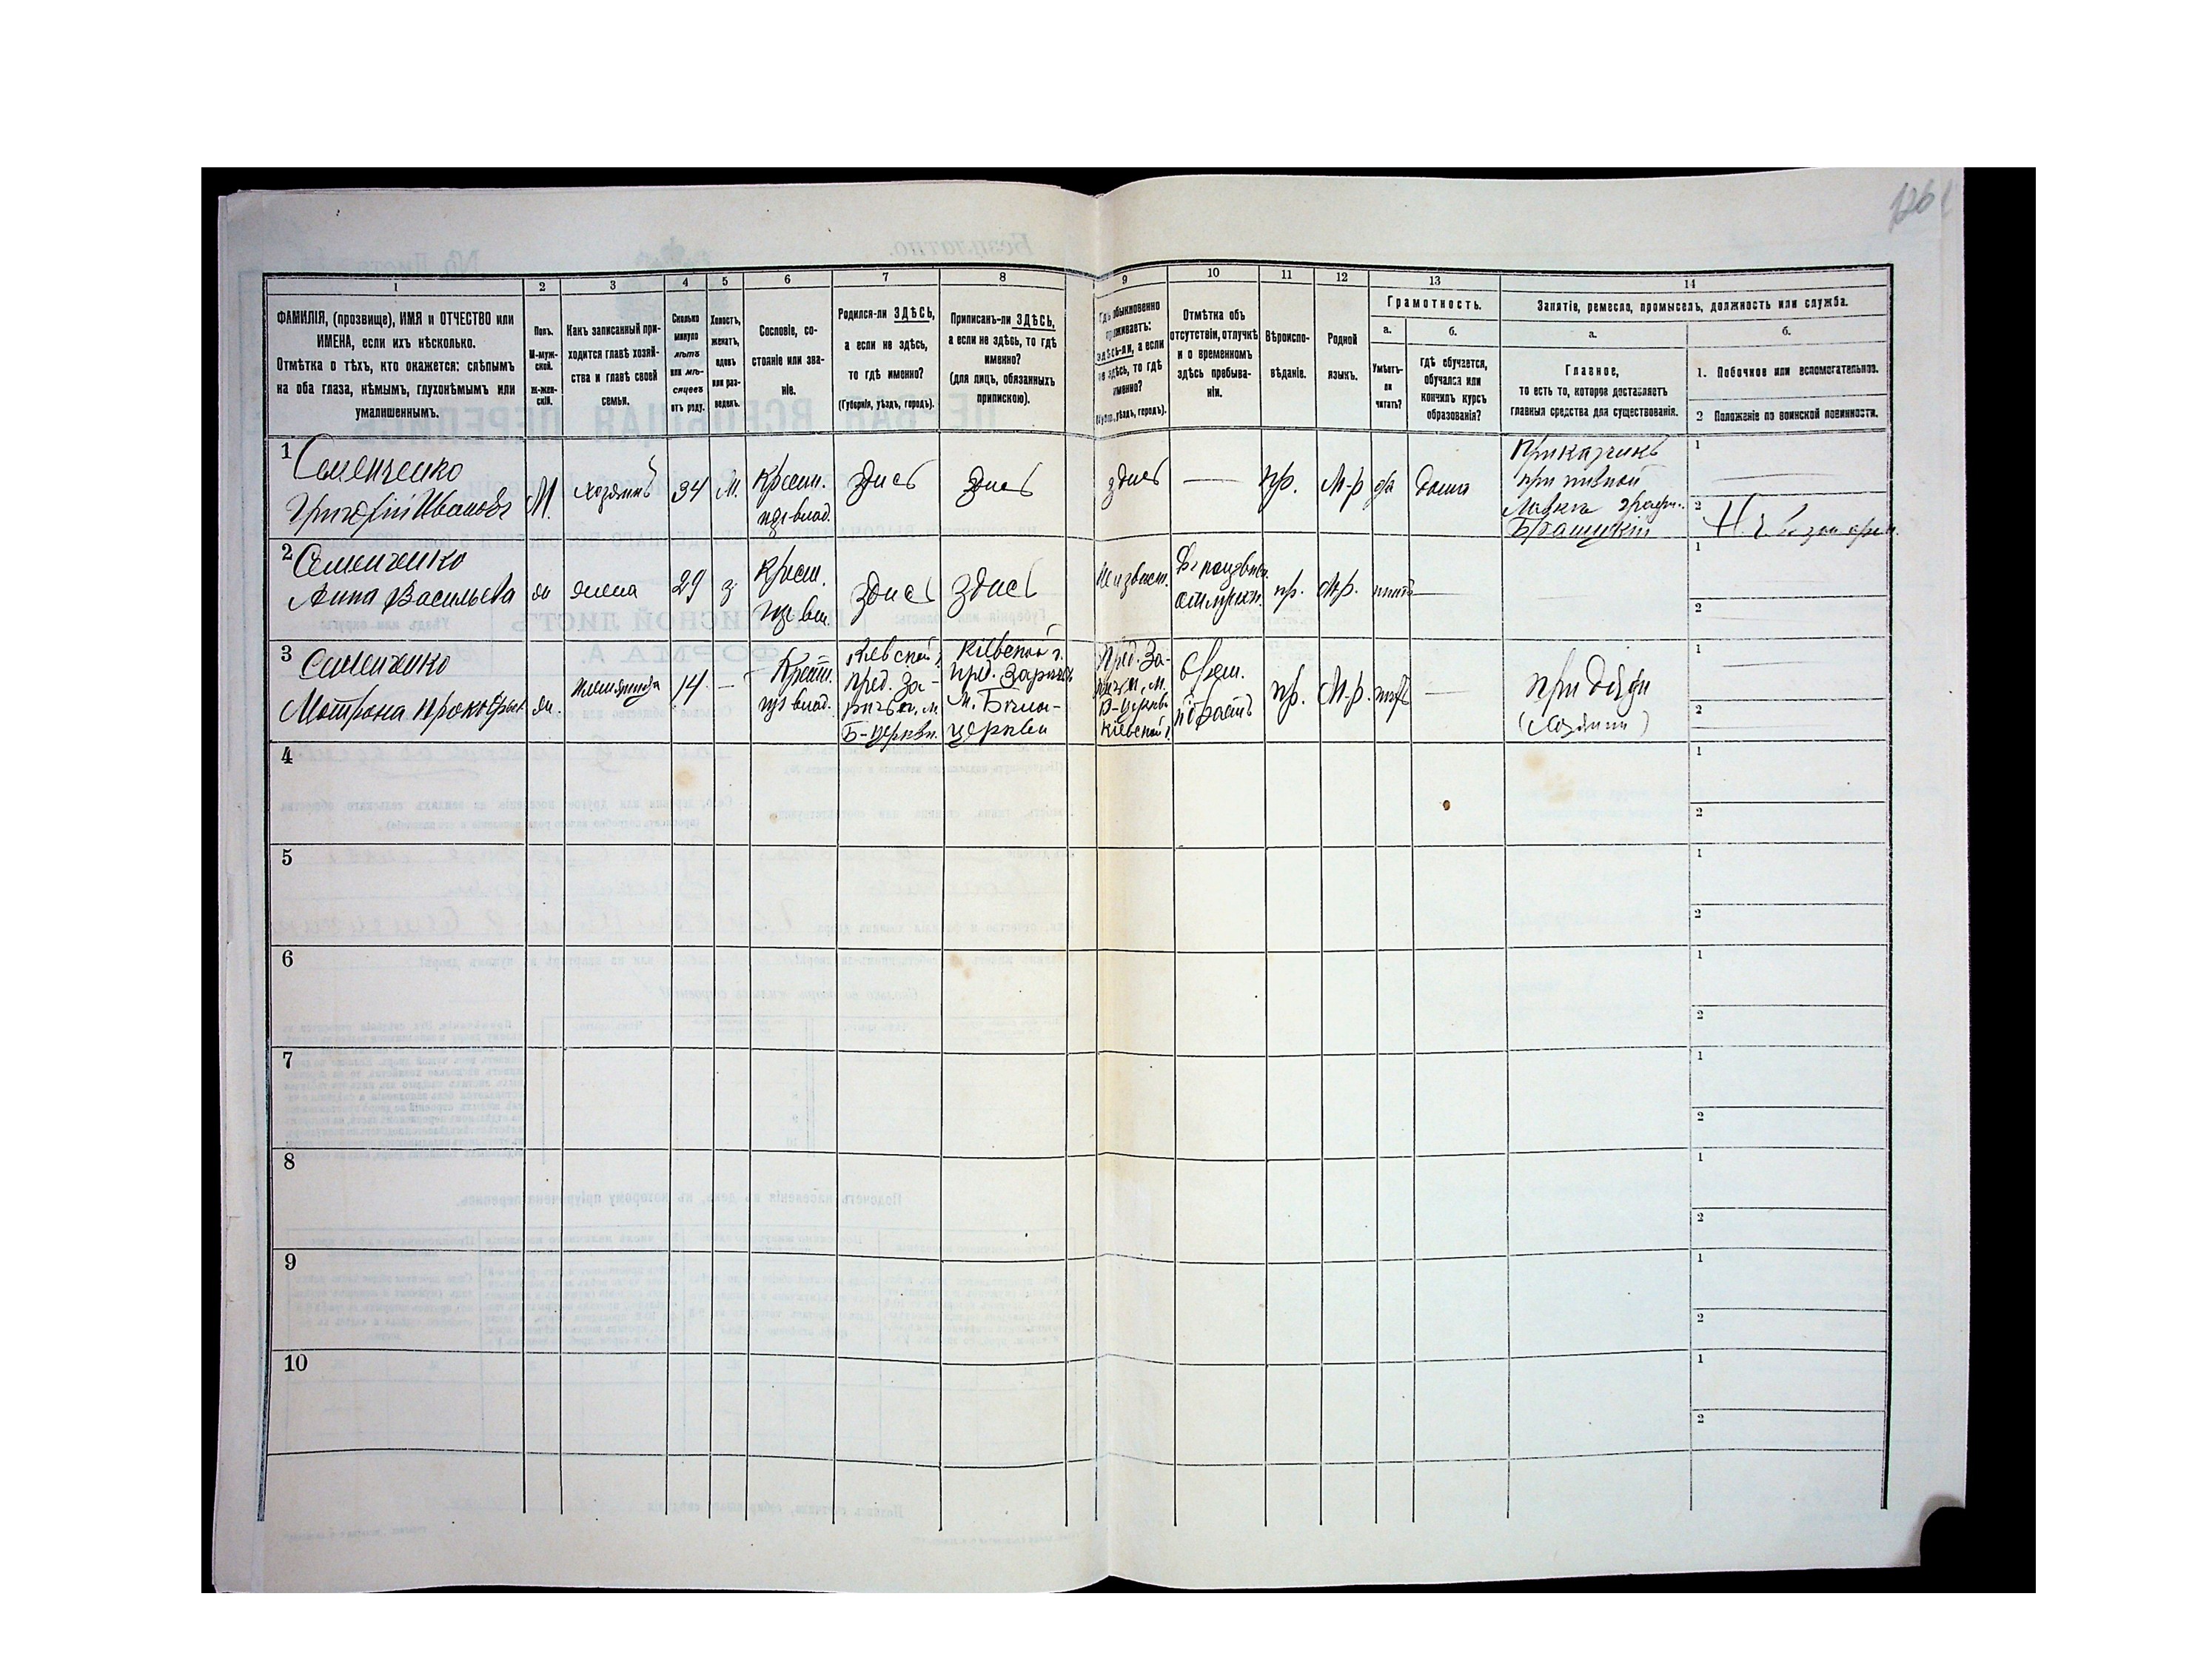 1261
1
2
3
4
5
6
7
8
9
10
11
12
13
14
ФАМИЛІЯ, (прозвище), ИМЯ и ОТЧЕСТВО или
ИМЕНА, если ихъ нѣсколько.
Отмѣтка о тѣхъ, кто окажется: слѣпымъ
на оба глаза, нѣмымъ, глухонѣмымъ или
умалишеннымъ.
Полъ.
М-муж-
ской.
Ж-жен-
скій.
Какъ записанный при-
ходится главѣ хозяй-
ства и главѣ своей
семьи.
Сколько
минуло
лѣтъ
или мѣ-
сяцевъ
отъ роду.
Холостъ,
женатъ,
вдовъ
или раз-
веденъ.
Сословіе, со-
стояніе или зва-
ніе.
Родился-ли ЗДѢСЬ,
а если не здѣсь,
то гдѣ именно?
(Губернія, уѣздъ, городъ).
Приписанъ-ли ЗДѢСЬ,
а если не здѣсь, то гдѣ
именно?
(для лицъ, обязанныхъ
припискою).
Гдѣ обыкновенно
проживаетъ:
здѣсь-ли, а если
не здѣсь, то гдѣ
именно?
(Губ., уѣздъ, городъ).
Отмѣтка объ
отсутствіи, отлучкѣ
и о временномъ
здѣсь пребыва-
ніи.
Вѣроиспо-
вѣданіе.
Родной
языкъ.
Грамотность.
а.
Умѣетъ-
ли
читать?
б.
гдѣ обучается,
обучался или
кончилъ курсъ
образованія?
Занятіе, ремесло, промыселъ, должность или служба.
а.
Главное,
то есть то, которое доставляетъ
главныя средства для существованія.
б.
1. Побочное или вспомогательное.
2 Положеніе по воинской повинности.
1 Семенченко
Григорій Ивановъ
М.
хозяинъ
34
М.
Крест.
изъ влад.
здись
здись
здись
—
пр.
М-р
да
дома
Прикащикъ
при пивной
Лавки граф.
Браницкій
1
2
2 Семенченко
Анна Васильева
ж
жена
29
з
Крест.
изъ вл.
здись
здись
Неизвест.
пр.
М-р.
нитъ
—
1
2
3 Семенченко
Мотрона Прокофьев.
ж.
племянница
14
—
Крест.
изъ влад.
Кіевской г.
пред. За-
ричья, м.
Б-церкви.
Кіевской г.
пред. Заричья
м. Бѣла-
церкви
Пред. За-
ричья, м.
Б-церкви
Кіевской г.
пр.
М-р.
нитъ
—
при дяди
(хозяини)
1
2
4
1
2
5
1
2
6
1
2
7
1
2
8
1
2
9
1
2
10
1
2